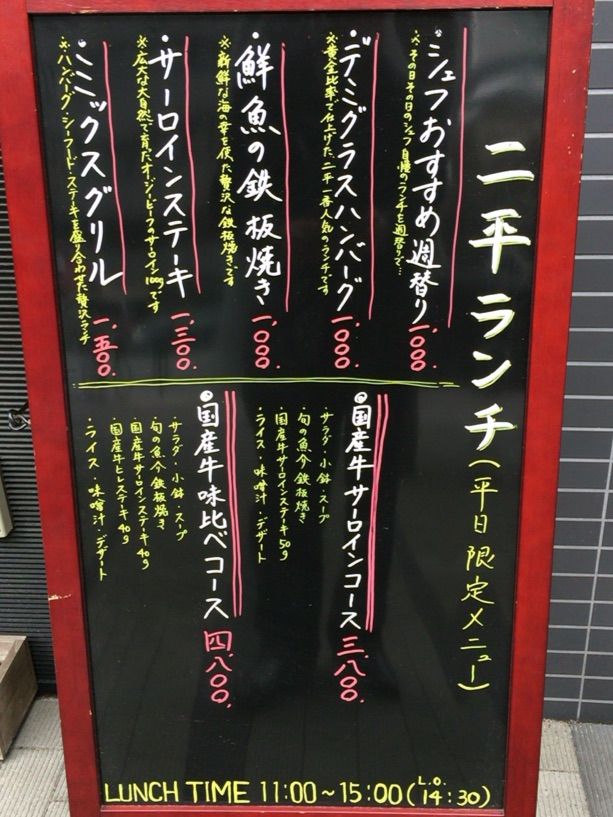 二平ランチ(平日限定メニュー)
・シェフおすすめ週替り 一、000.
※その日その日のシェフ自慢のランチを週替りで…
・デミグラスハンバーグ 一、000.
※黄金比率で仕上げた二平一番人気のランチです
・鮮魚の鉄板焼き 一、000.
※新鮮な海の幸を使た贅沢な鉄板焼きです
・サーロインステーキ 一、三00.
※広大な大自然で育だオージービーフのサーロイン100gです
・ミックスグリル 一、五00.
※ハンバーグ・シーフード・ステーキを盛り合わせた贅沢ランチ
◎国産牛サーロインコース 三、八00.
・サラダ・小鉢・スープ
・旬の魚介鉄板焼き
・国産牛サーロインステーキ50g
・ライス・味噌汁・デザート
◎国産牛味比べコース 四、八00.
・サラダ・小鉢・スープ
・旬の魚介鉄板焼き
・国産牛サーロインステーキ40g
・国産牛ヒレステーキ40g
・ライス・味噌汁・デザート
LUNCH TIME 11:00~15:00(L.O. 14:30)